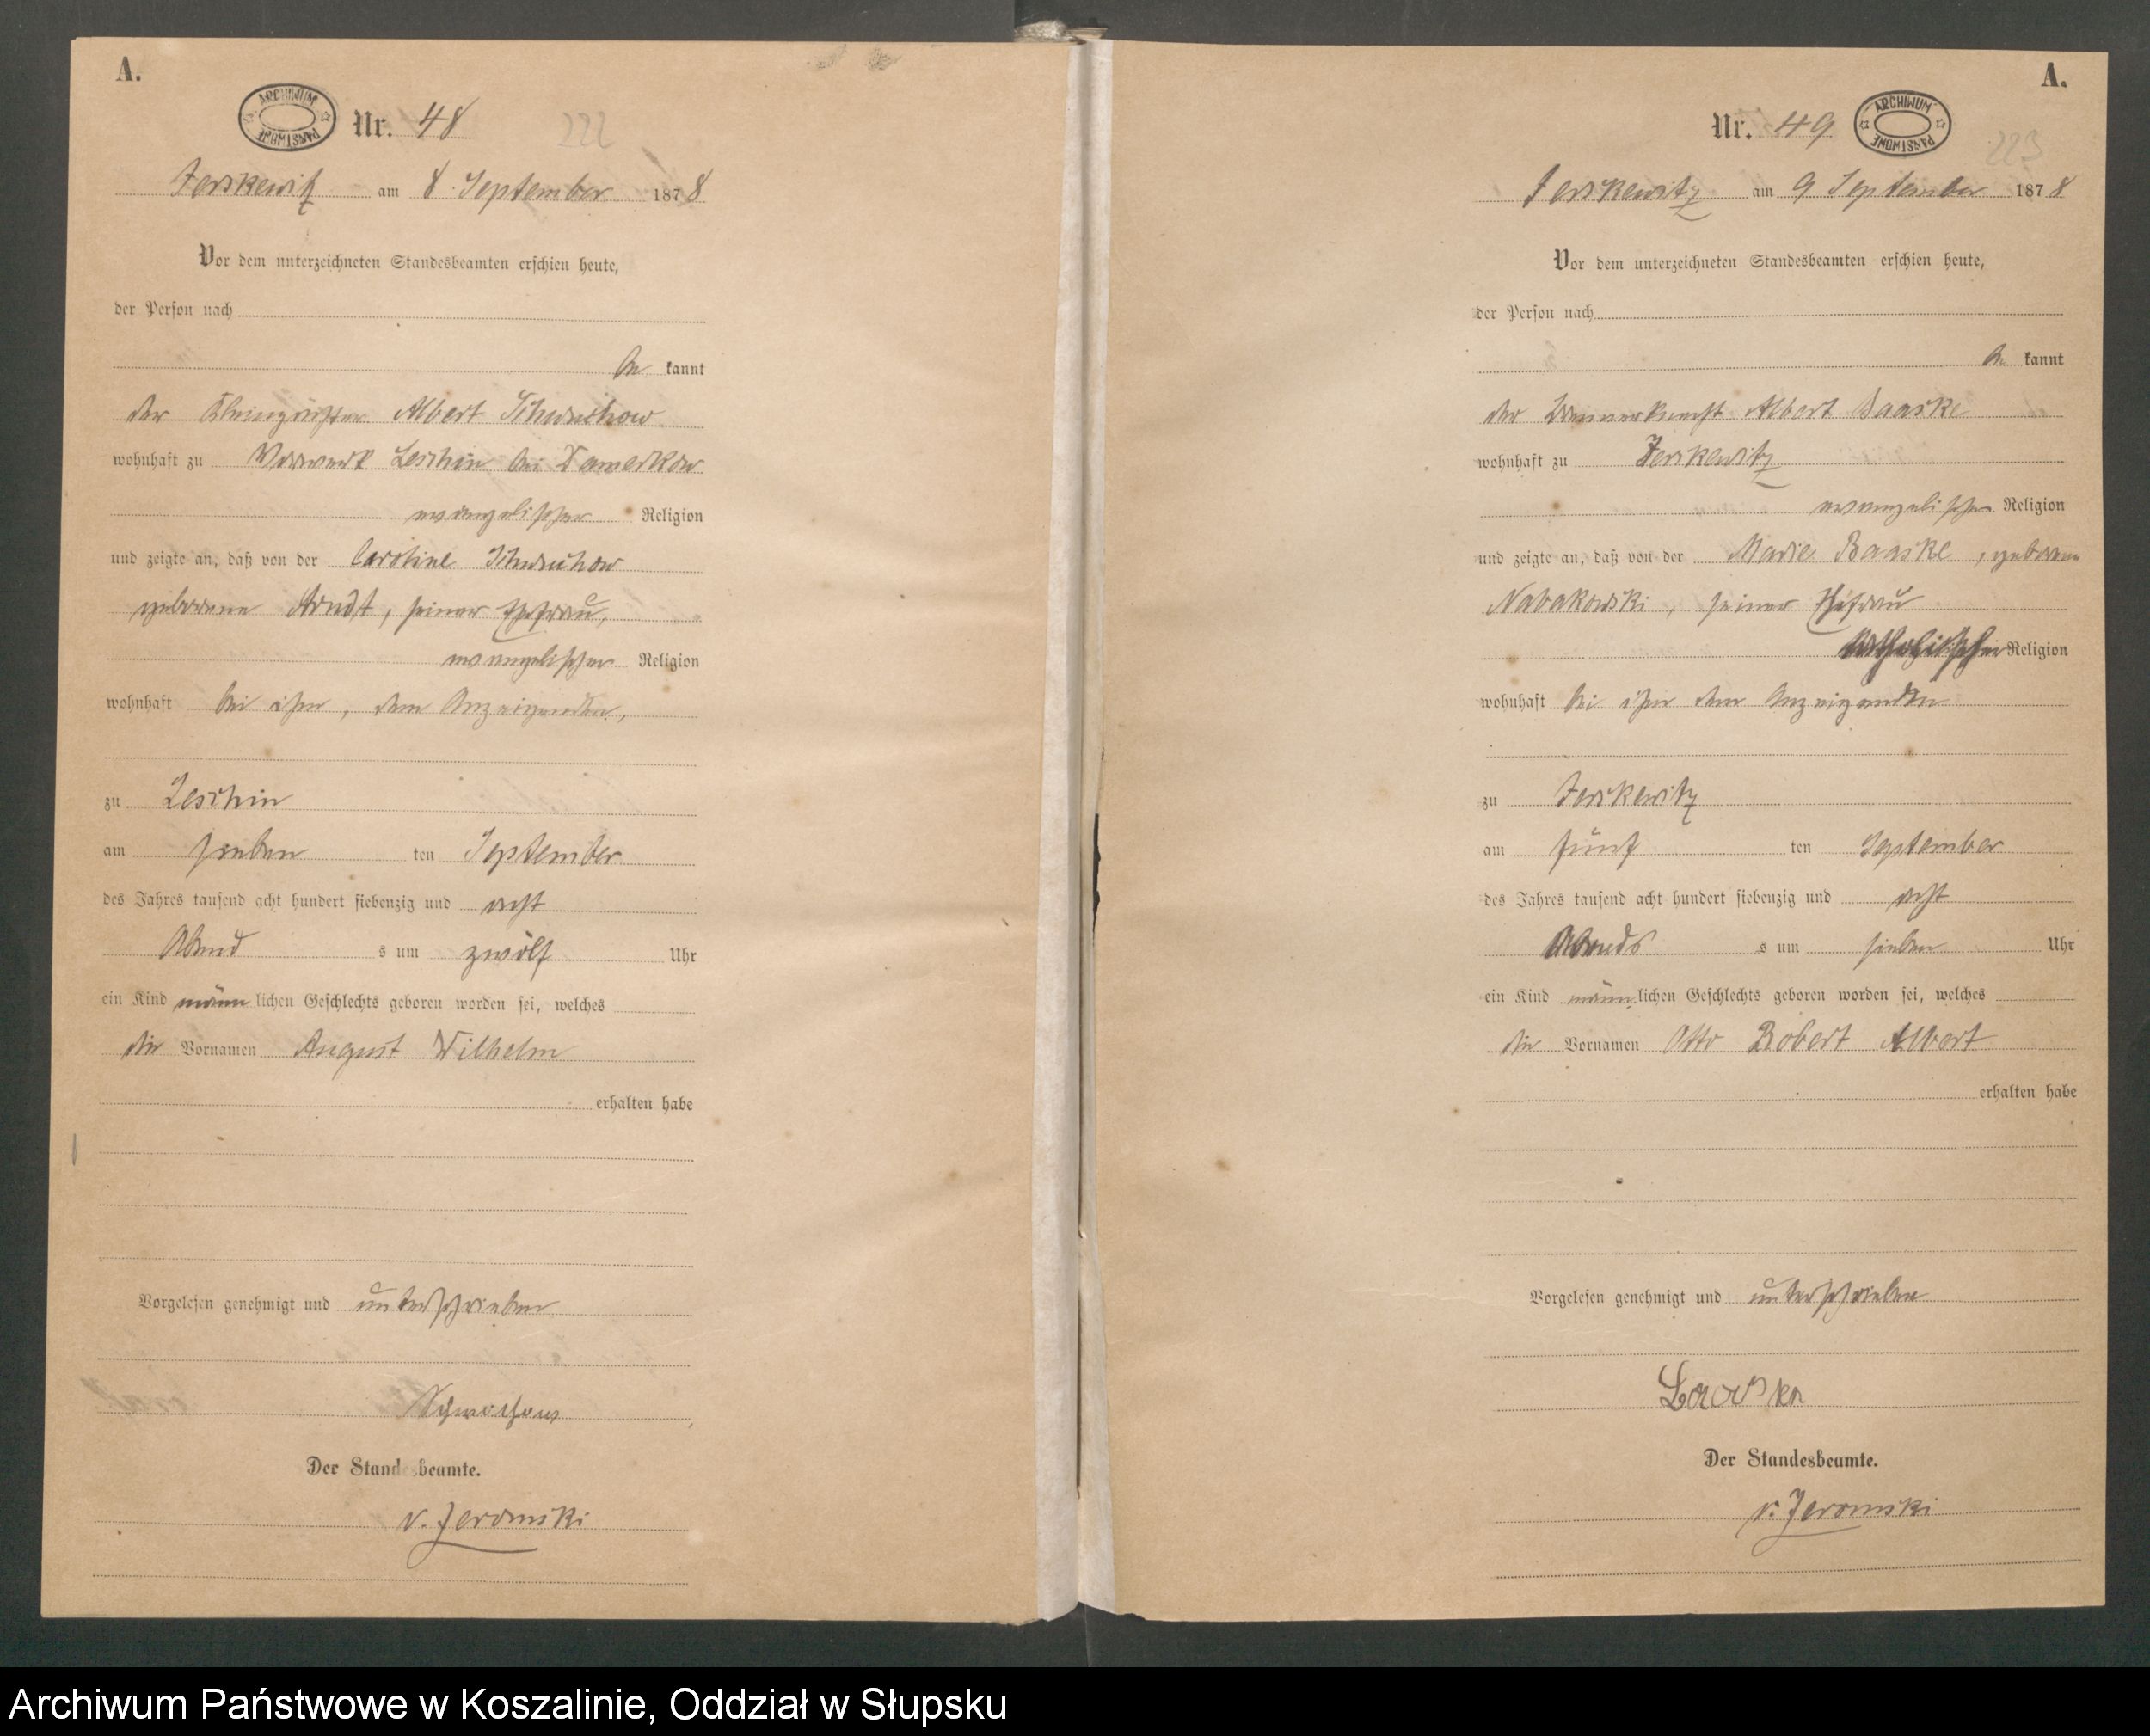 A.
ARCHIWUM PAŃSTWOWE
Nr. 48
222
Jerskewitz am 8. September 1878
Vor dem unterzeichneten Standesbeamten erschien heute,
der Person nach
be kannt
der Albert Schwuchow
wohnhaft zu Vorwerk Leschin bei Damerkow
evangelischer Religion
und zeigte an, daß von der Caroline Schwuchow
geborene Arndt, seiner Ehefrau,
evangelischer Religion
wohnhaft bei ihm, dem Anzeigenden,
zu Leschin
am sieben ten September
des Jahres tausend acht hundert siebenzig und acht
Abend s um zwölf Uhr
ein Kind männ lichen Geschlechts geboren worden sei, welches
die Vornamen August Wilhelm
erhalten habe
Vorgelesen genehmigt und unterschrieben
Schwochow
Der Standesbeamte.
v. Jeromski
A.
Nr. 49
ARCHIWUM PAŃSTWOWE
223
Jerskewitz am 9 September 1878
Vor dem unterzeichneten Standesbeamten erschien heute,
der Person nach
be kannt
der Albert Baaske
wohnhaft zu Jerskewitz
evangelischer Religion
und zeigte an, daß von der Marie Baaske, geborene
Nabakowski, seiner Ehefrau
katholischer Religion
wohnhaft bei ihm dem Anzeigenden
zu Jerskewitz
am fünf ten September
des Jahres tausend acht hundert siebenzig und acht
Abends s um sieben Uhr
ein Kind männ lichen Geschlechts geboren worden sei, welches
die Vornamen Otto Robert Albert
erhalten habe
Vorgelesen genehmigt und unterschrieben
Baaske
Der Standesbeamte.
v. Jeromski
Archiwum Państwowe w Koszalinie, Oddział w Słupsku